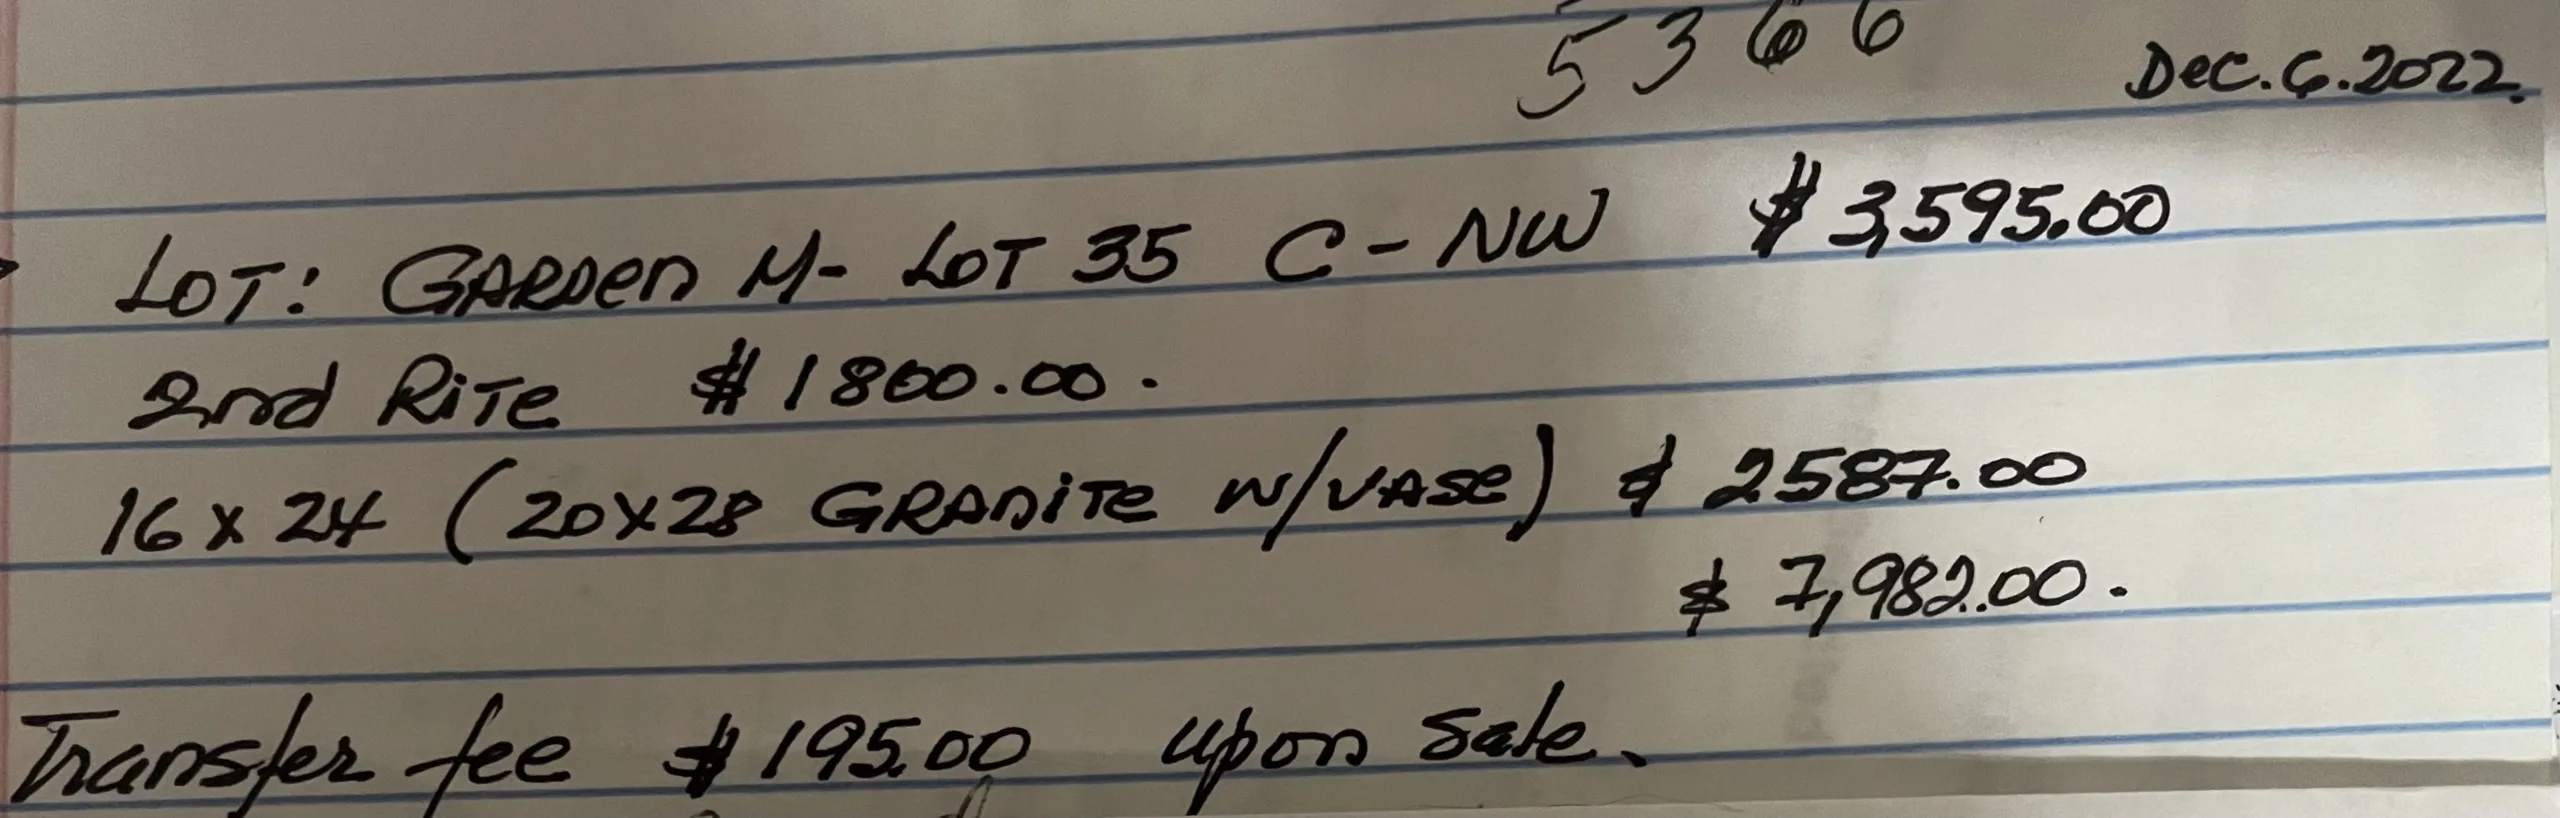 5366
Dec. 6. 2022.
LOT: GARDEN M- LOT 35 C-NW $3,595.00
2nd RiTe $1800.00.
16x24 (20x28 GRANiTe w/VASe) $2587.00
$7,982.00.
Transfer fee $195.00 upon Sale.